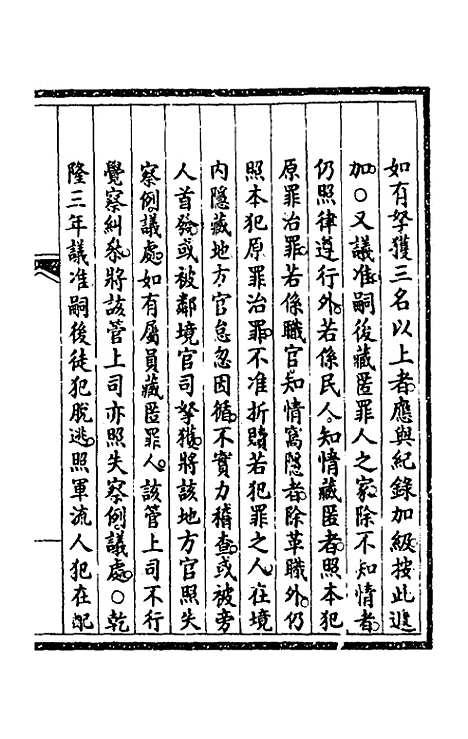 如有拏獲三名以上者應與紀錄加級按此遞
加○又議准嗣後藏匿罪人之家除不知情者
仍照律遵行外若係民人知情藏匿者照本犯
原罪治罪若係職官知情窩隱者除革職外仍
照本犯原罪治罪不准折贖若犯罪之人在境
內隱藏地方官怠忽因循不實力稽查或被旁
人首發或被鄰境官司拏獲將該地方官照失
察例議處如有屬員藏匿罪人該管上司不行
覺察糾叅將該管上司亦照失察例議處○乾
隆三年議准嗣後徒犯脫逃照軍流人犯在配